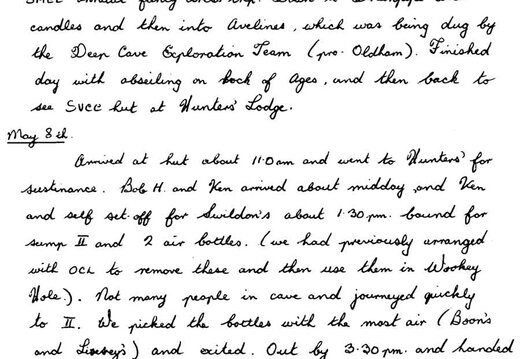 candles and then into Avelines, which was being dug by
the Deep Cave Exploration Team (pro. Oldham). Finished
day with abseiling on Rock of Ages, and then back to
see SVCC hut at Hunters' Lodge.
May 8th.
Arrived at hut about 11.0am and went to Hunters' for
sustinance. Bob H. and Ken arrived about midday, and Ken
and self set off for Swildon's about 1.30.pm. bound for
sump II and 2 air bottles. (we had previously arranged
with OCL to remove these and then use them in Wookey
Hole.). Not many people in cave and journeyed quickly
to II. We picked the bottles with the most air (Boon's
and Livesey's) and exited. Out by 3.30pm. and handed